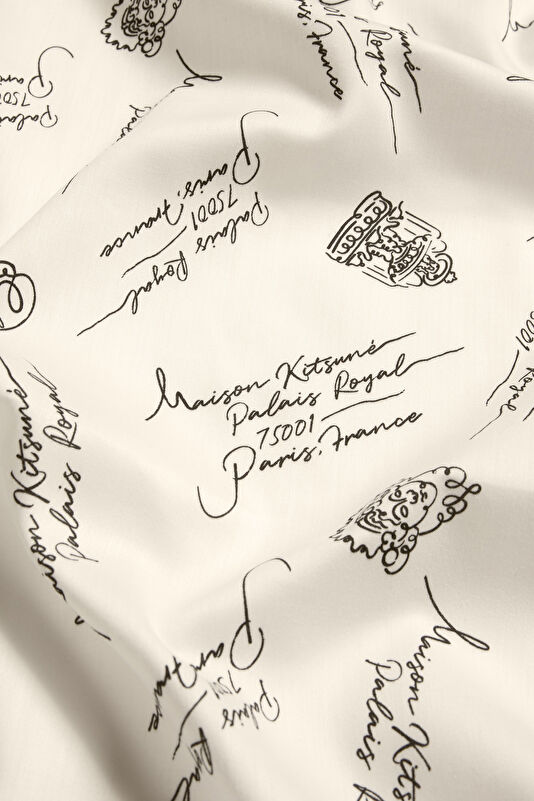 Paris, France
Royal
Palais
Paris, France
75001
Palais Royal
Maison Kitsuné
Palais Royal
75001
Paris, France
Maison Kitsuné
Palais Royal
Paris, France
Palais Royal
Maison Kitsuné
Palais